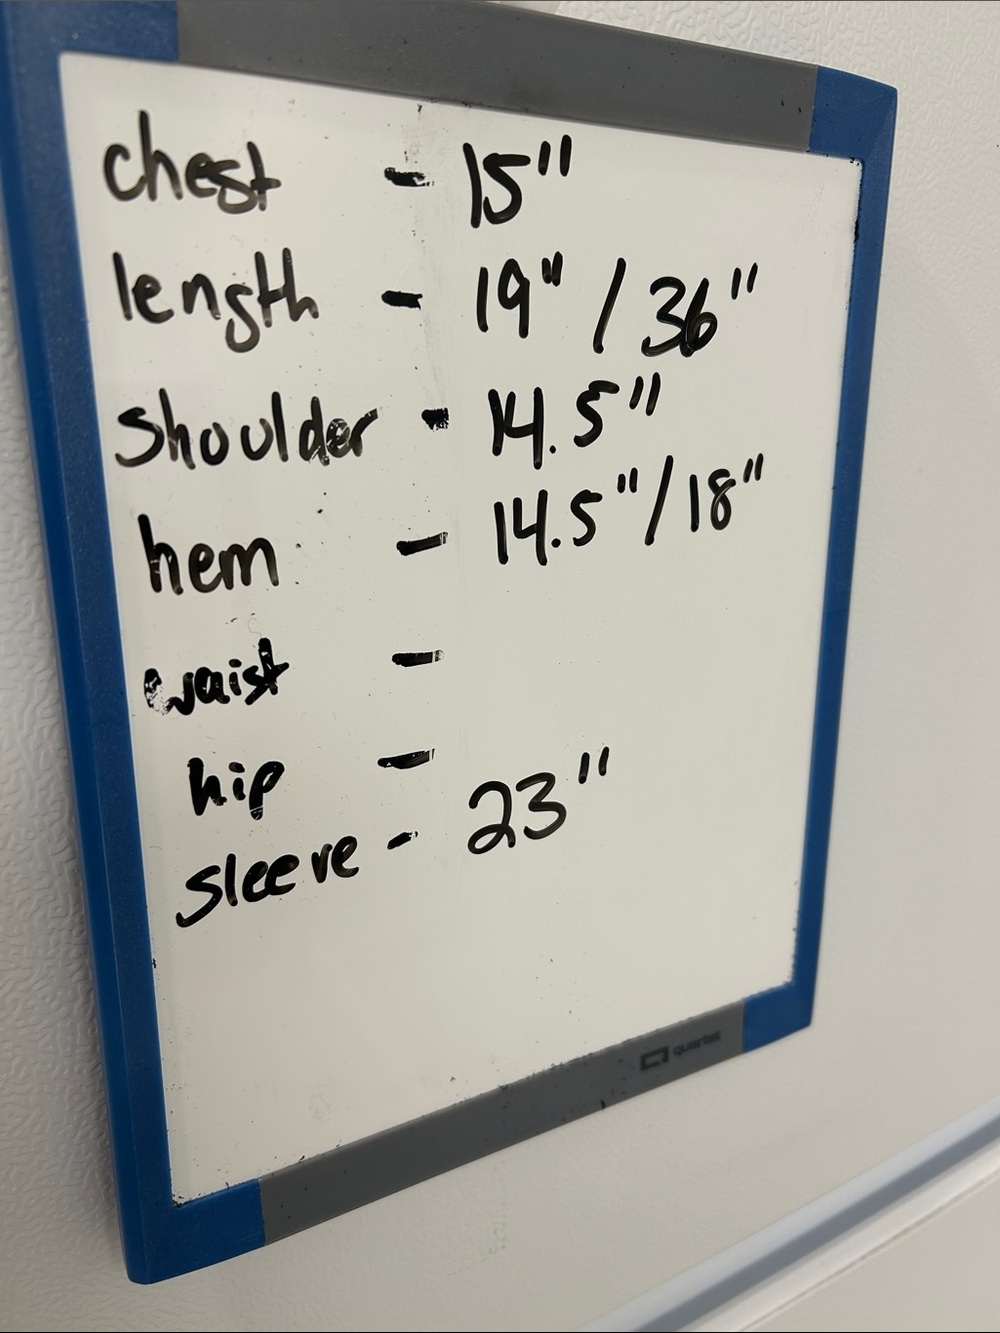 chest - 15"
length - 19" / 36"
shoulder - 14.5"
hem - 14.5" / 18"
waist -
hip -
sleeve - 23"
quartet